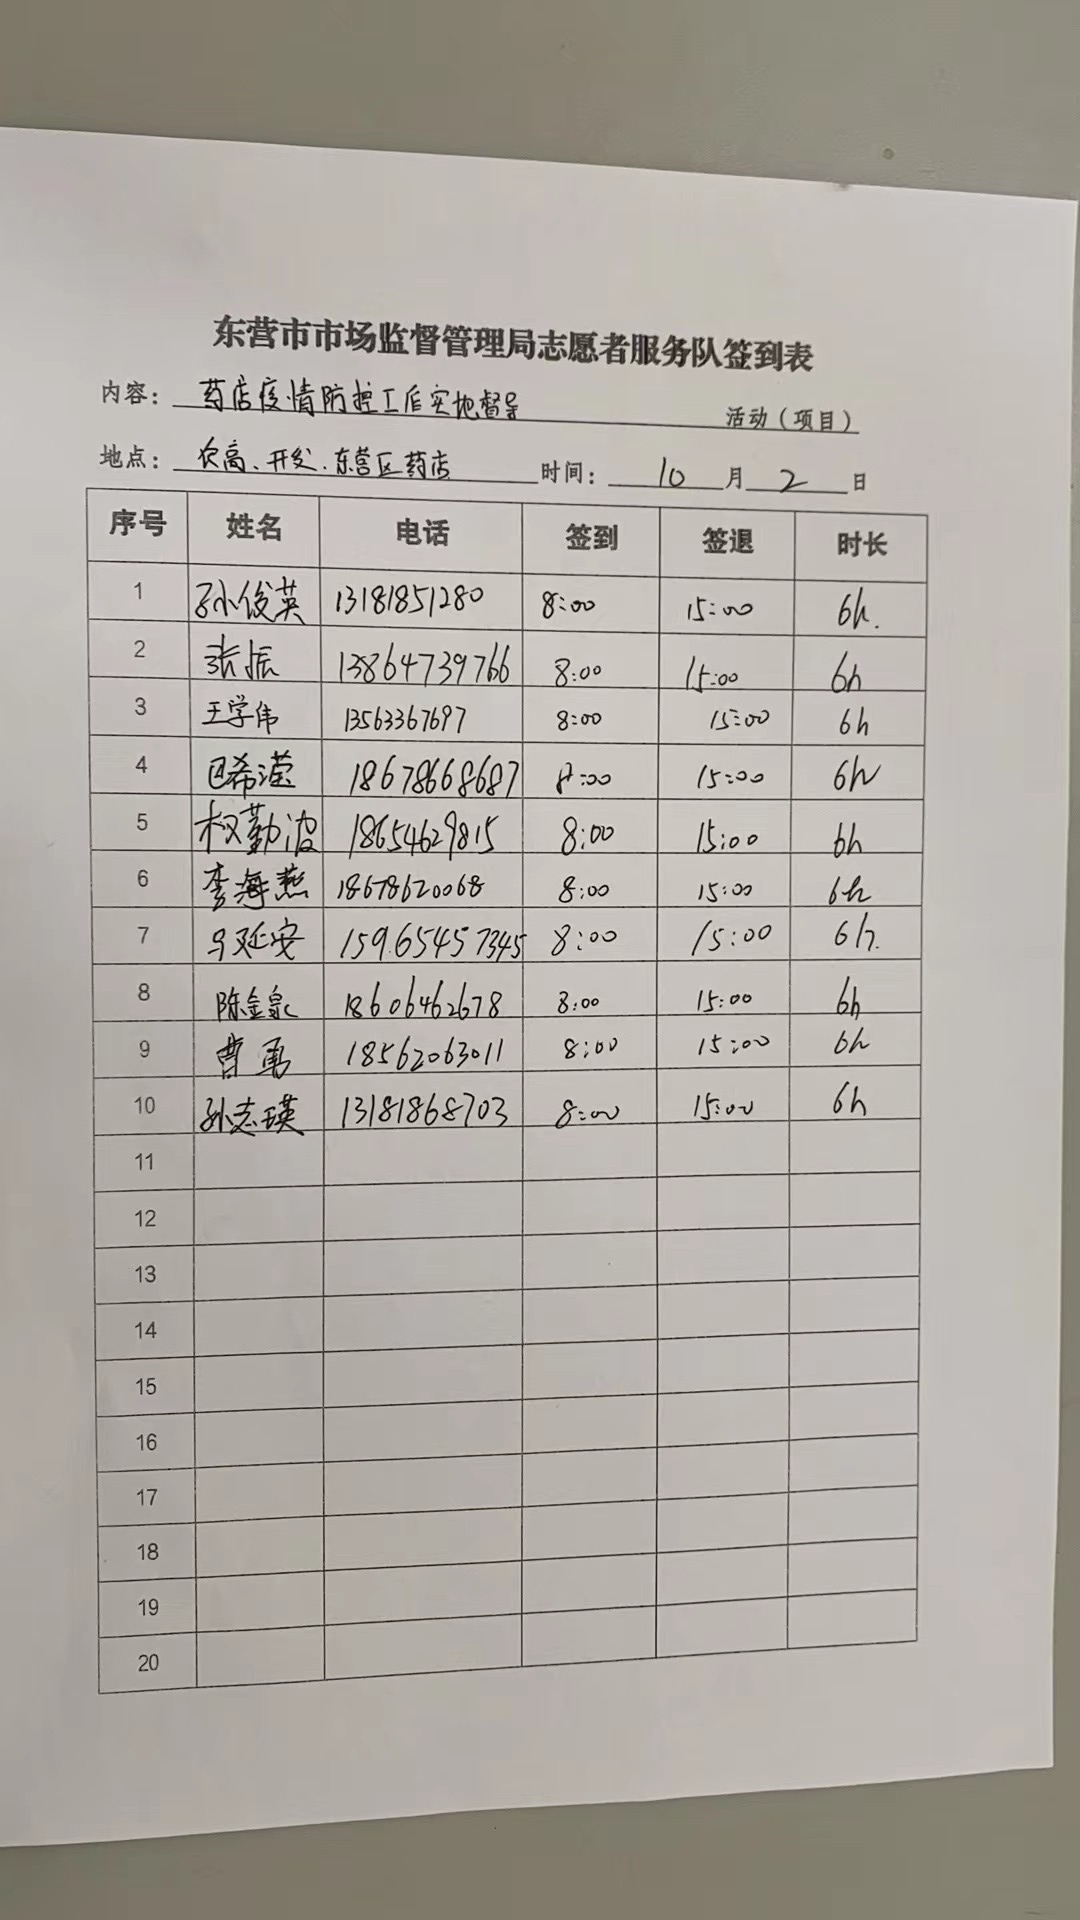 东营市市场监督管理局志愿者服务队签到表
内容： 药店疫情防控工作实地督导 活动（项目）
地点： 农高、开发、东营区药店 时间： 10 月 2 日
序号 姓名 电话 签到 签退 时长
1 孙俊英 13181851280 8:00 15:00 6h.
2 张振 13864739766 8:00 15:00 6h
3 王学伟 13563367697 8:00 15:00 6h
4 巴希滢 18678668687 8:00 15:00 6h
5 权勤波 18654629815 8:00 15:00 6h
6 李海燕 18678620068 8:00 15:00 6h
7 马延安 15965457345 8:00 15:00 6h.
8 陈金泉 18606462678 8:00 15:00 6h
9 曹勇 18562063011 8:00 15:00 6h
10 孙志瑛 13181868703 8:00 15:00 6h
11
12
13
14
15
16
17
18
19
20